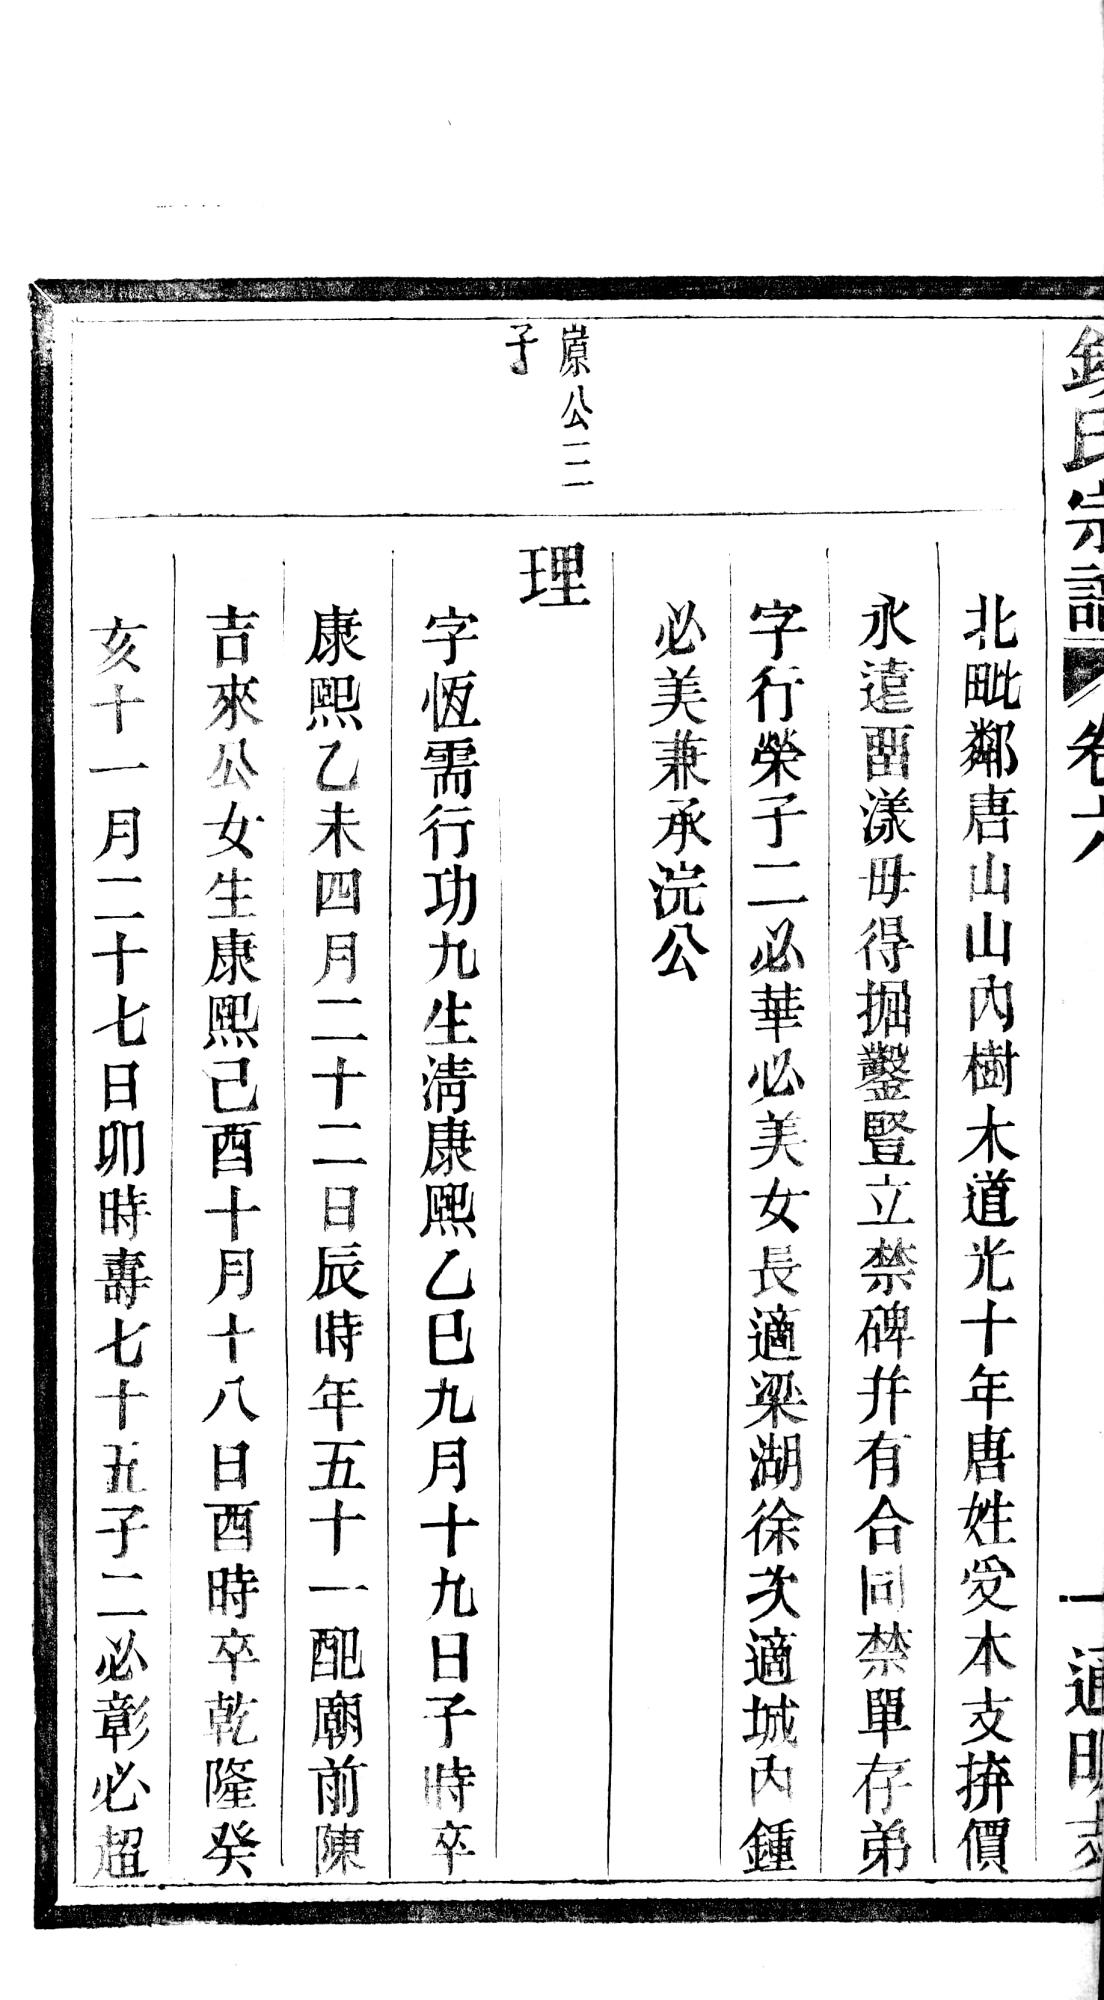 錢氏宗譜
卷六
一
通明支
北毗鄰唐山山內樹木道光十年唐姓受本支拚價
永遠畱漾毋得掘鑿豎立禁碑幷有合同禁單存弟
字行榮子二必華必美女長適梁湖徐次適城內鍾
必美兼承浣公
㟲公二
子
理
字恆需行功九生淸康熙乙巳九月十九日子時卒
康熙乙未四月二十二日辰時年五十一配廟前陳
吉來公女生康熙己酉十月十八日酉時卒乾隆癸
亥十一月二十七日卯時壽七十五子二必彰必超